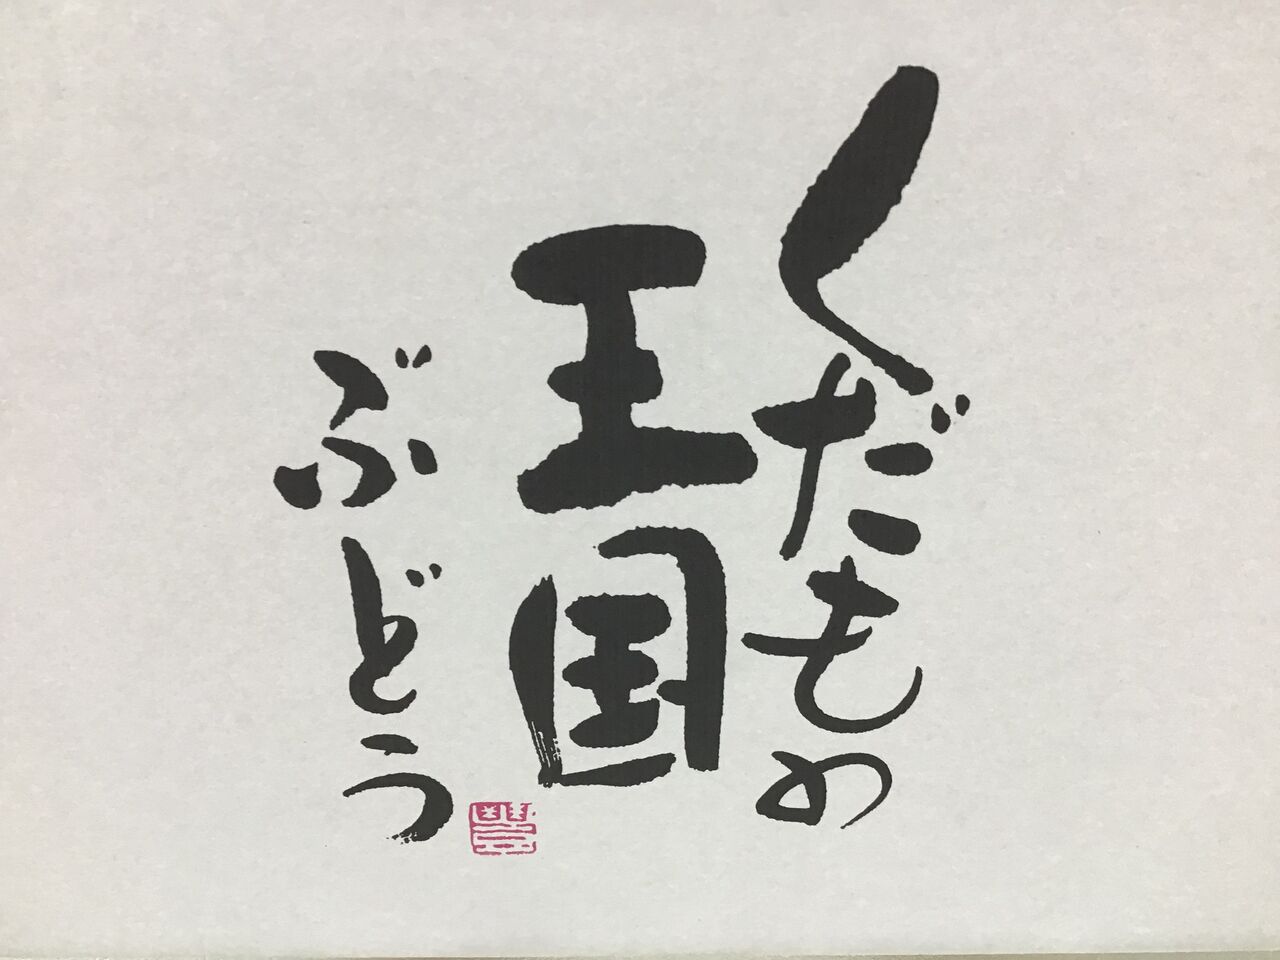 くだもの
王国
ぶどう